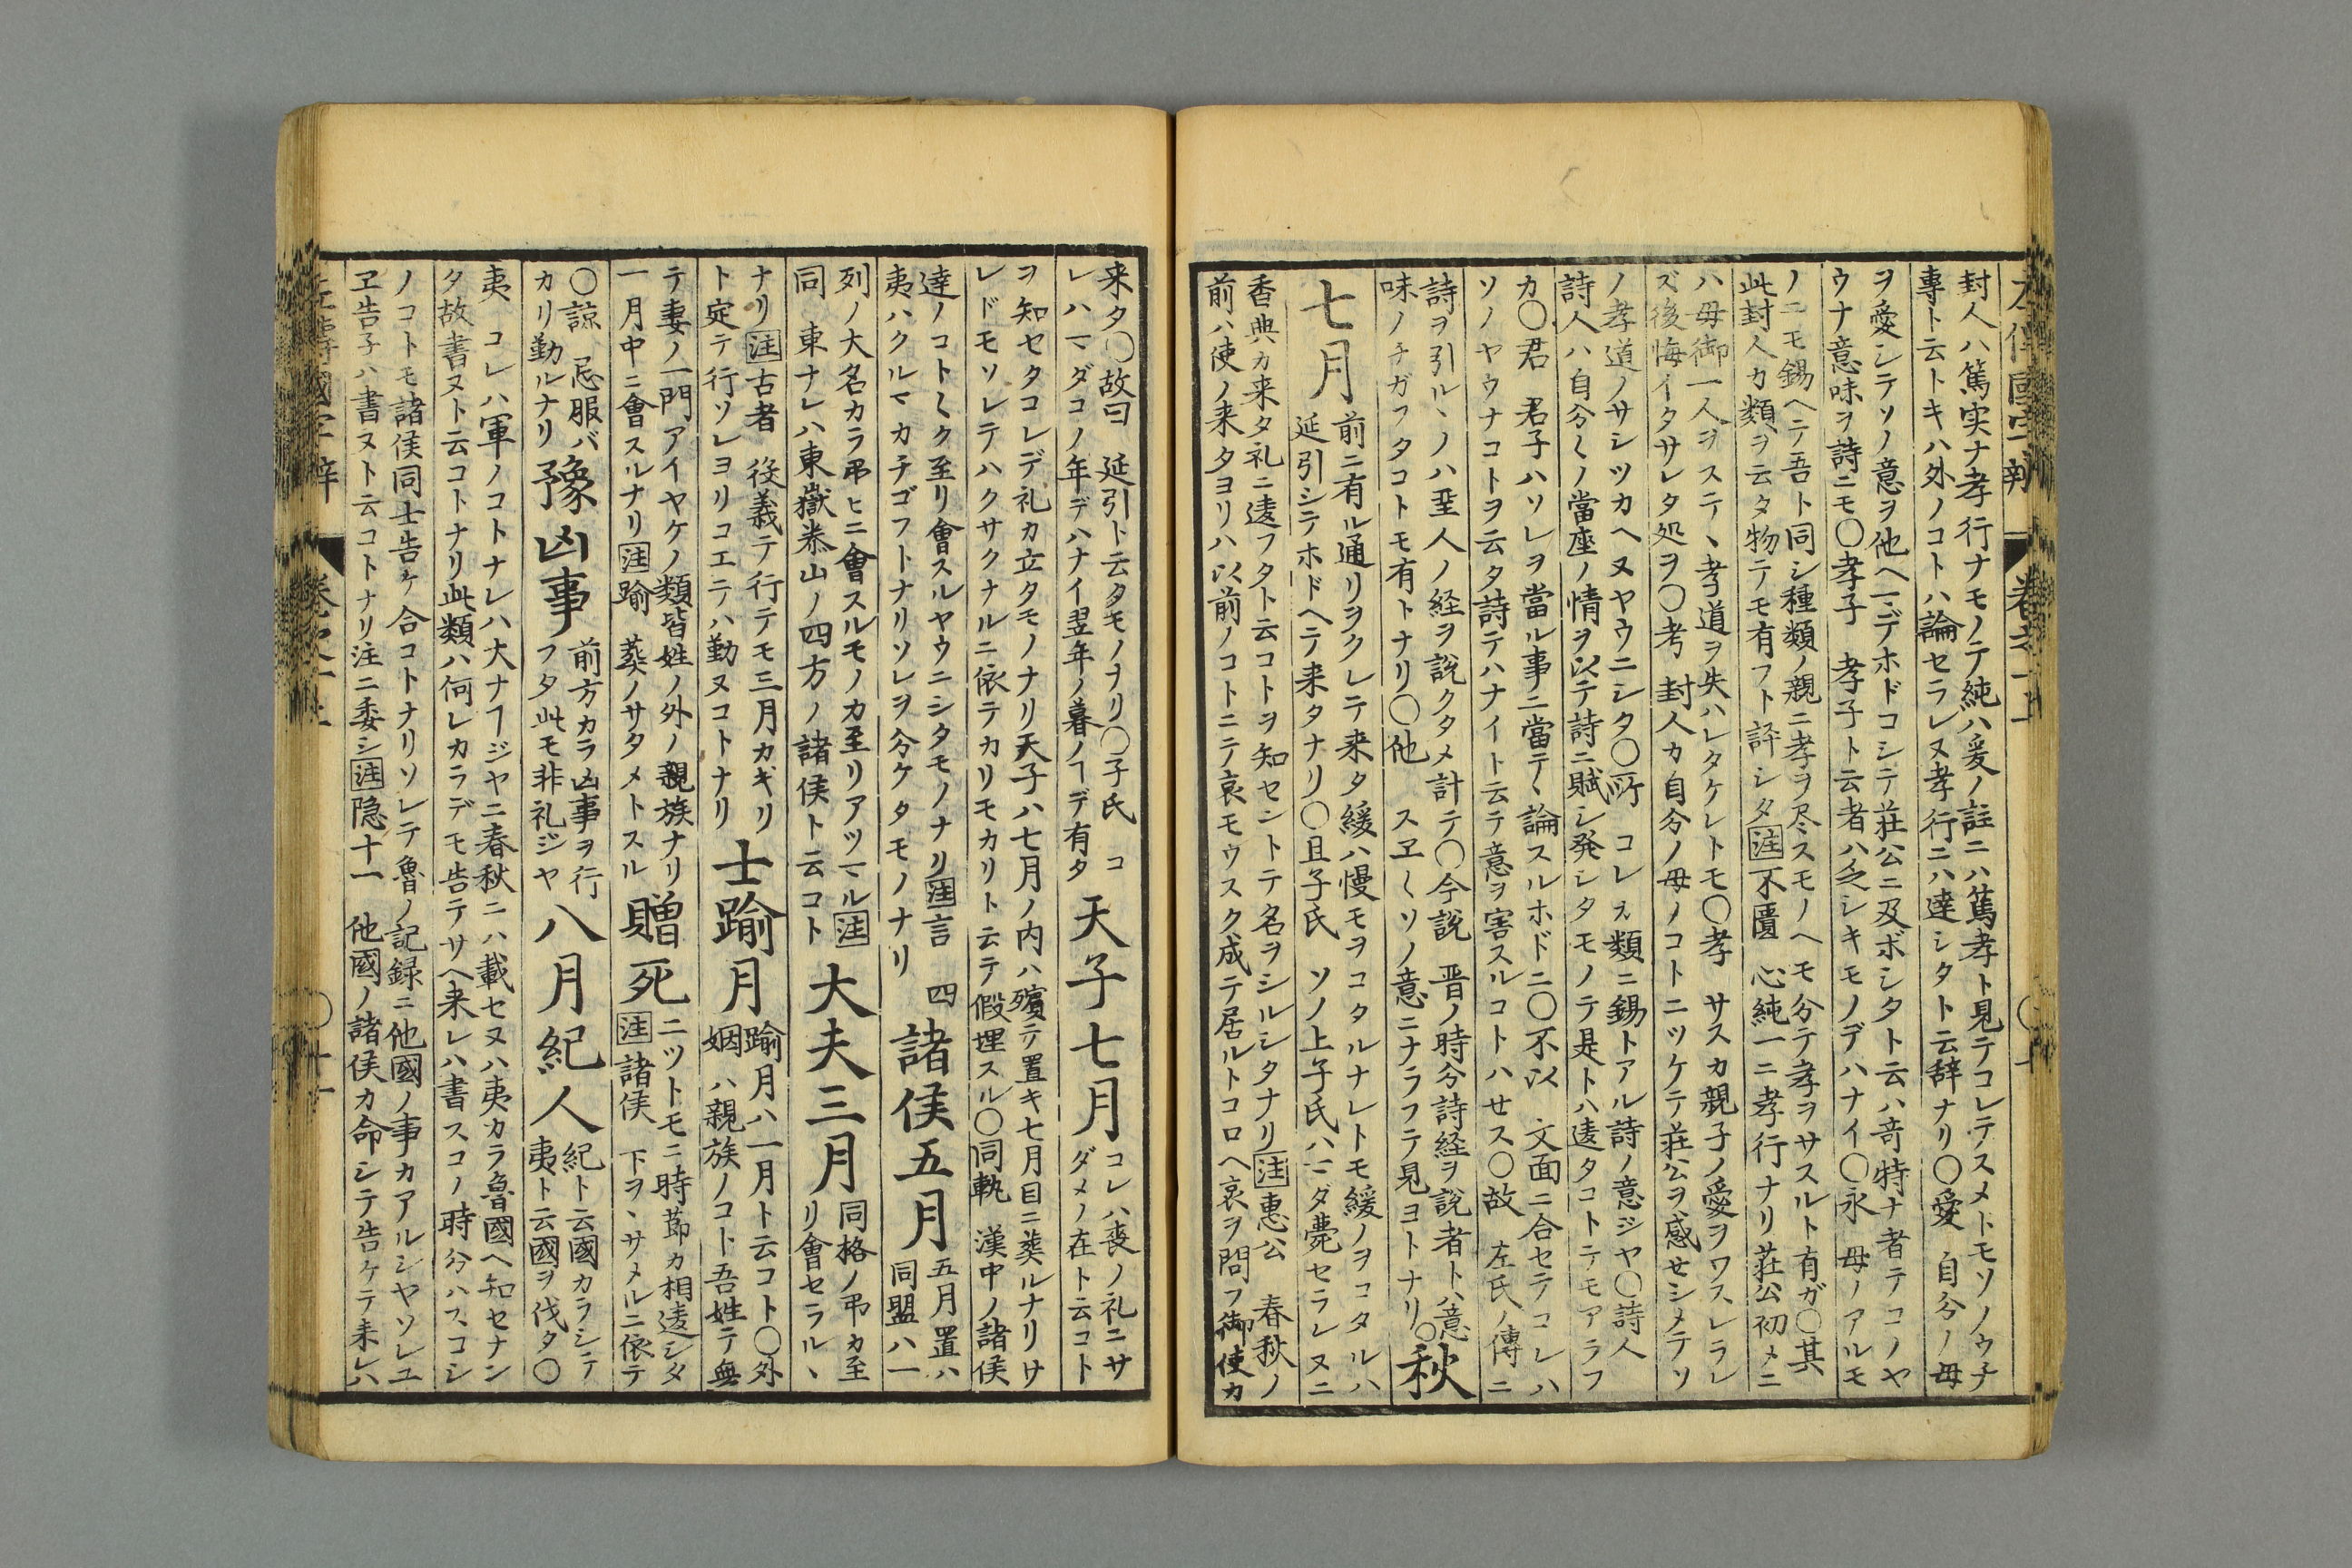 封人ハ篤実ナ孝行ナモノテ純ハ爰ノ註ニハ篤孝ト見テコレテスメトモソノウチ
専ト云トキハ外ノコトハ論セラレヌ孝行ニハ達シタト云辞ナリ〇愛 自分ノ母
ヲ愛シテソノ意ヲ他ヘマデホドコシテ莊公ニ及ボシタト云ハ竒特ナ者テコノヤ
ウナ意味ヲ詩ニモ〇孝子 孝子ト云者ハ乏シキモノデハナイ〇永 母ノアルモ
ノニモ錫ヘテ吾ト同シ種類ノ親ニ孝ヲ尽スモノヘモ分テ孝ヲサスルト有ガ〇其
此封人カ類ヲ云タ物テモ有フト評シタ注不匱 心純一ニ孝行ナリ莊公初メニ
ハ母御一人ヲステヽ孝道ヲ失ハレタケレトモ〇孝 サスカ親子ノ愛ヲワスレラレ
ズ後悔イタサレタ処ヲ〇考 封人カ自分ノ母ノコトニツケテ莊公ヲ感セシメテソ
ノ孝道ノサシツカヘヌヤウニシタ〇所 コレカ類ニ錫トアル詩ノ意ジヤ〇詩人
詩人ハ自分〱ノ當座ノ情ヲ以テ詩ニ賦シ発シタモノテ是トハ遠タコトテモアラフ
カ〇君 君子ハソレヲ當ル事ニ當テヽ論スルホドニ〇不以 文面ニ合セテコレハ
ソノヤウナコトヲ云タ詩テハナイト云テ意ヲ害スルコトハセス〇故 左氏ノ傳ニ
詩ヲ引ルヽノハ聖人ノ経ヲ説クタメ計テ〇今説 晋ノ時分詩経ヲ説者トハ意
味ノチガフタコトモ有トナリ〇他 スヱ〱ソノ意ニナラフテ見ヨトナリ〇秋
七月 前ニ有ル通リヲクレテ来タ緩ハ慢モヲコタルナレトモ緩ノヲコタルハ
延引シテホドヘテ来タナリ〇且子氏 ソノ上子氏ハマダ薨セラレヌニ
香典カ来タ礼ニ遠フタト云コトヲ知セントテ名ヲシルシタナリ注惠公 春秋ノ
前ハ使ノ来タヨリハ以前ノコトニテ哀モウスク成テ居ルトコロヘ哀ヲ問フ御使カ
来タ〇故曰 延引ト云タモノナリ〇子氏 コ
レハマダコノ年デハナイ翌年ノ暮ノヿデ有タ
天子七月 コレハ喪ノ礼ニサ
ダメノ在ト云コト
ヲ知セタコレデ礼カ立タモノナリ天子ハ七月ノ内ハ殯テ置キ七月目ニ葬ルナリサ
レドモソレテハクサクナルニ依テカリモカリト云テ假埋スル〇同軌 漢中ノ諸侯
達ノコト〱ク至リ會スルヤウニシタモノナリ注言 四
夷ハクルマカチゴフトナリソレヲ分ケタモノナリ
諸侯五月 五月置ハ
同盟ハ一
列ノ大名カラ弔ヒニ會スルモノカ至リアツマル注
同 東ナレハ東嶽泰山ノ四方ノ諸侯ト云コト
大夫三月 同格ノ弔カ至
リ會セラルヽ
ナリ注古者 役義テ行テモ三月カギリ
ト定テ行ソレヨリコエテハ勤ヌコトナリ
士踰月 踰月ハ一月ト云コト〇外
姻 ハ親族ノコト吾姓テ無
テ妻ノ一門アイヤケノ類皆姓ノ外ノ親族ナリ
一月中ニ會スルナリ注踰 葬ノサタメトスル
贈死 ニツトモニ時節カ相遠シタ
注諸侯 下ヲヽサメルニ依テ
〇諒 忌服バ
カリ勤ルナリ
豫凶事 前方カラ凶事ヲ行
フタ此モ非礼ジヤ
八月紀人 紀ト云國カラシテ
夷ト云國ヲ伐タ〇
夷 コレハ軍ノコトナレハ大ナヿジヤニ春秋ニハ載セヌハ夷カラ魯國ヘ知セナン
タ故書ヌト云コトナリ此類ハ何レカラデモ告テサヘ来レハ書スコノ時分ハスコシ
ノコトモ諸侯同士告ケ合コトナリソレテ魯ノ記録ニ他國ノ事カアルシヤソレユ
ヱ告子ハ書ヌト云コトナリ注ニ委シ注隠十一 他國ノ諸侯カ命シテ告ケテ来レハ